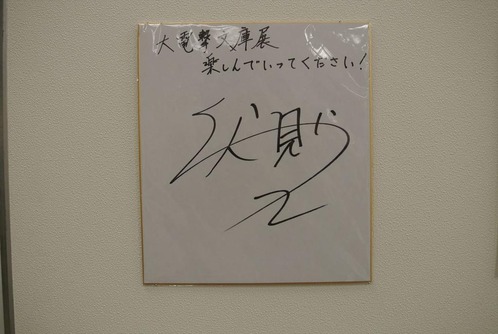 大電撃文庫展
楽しんでいってください!
伏見つ